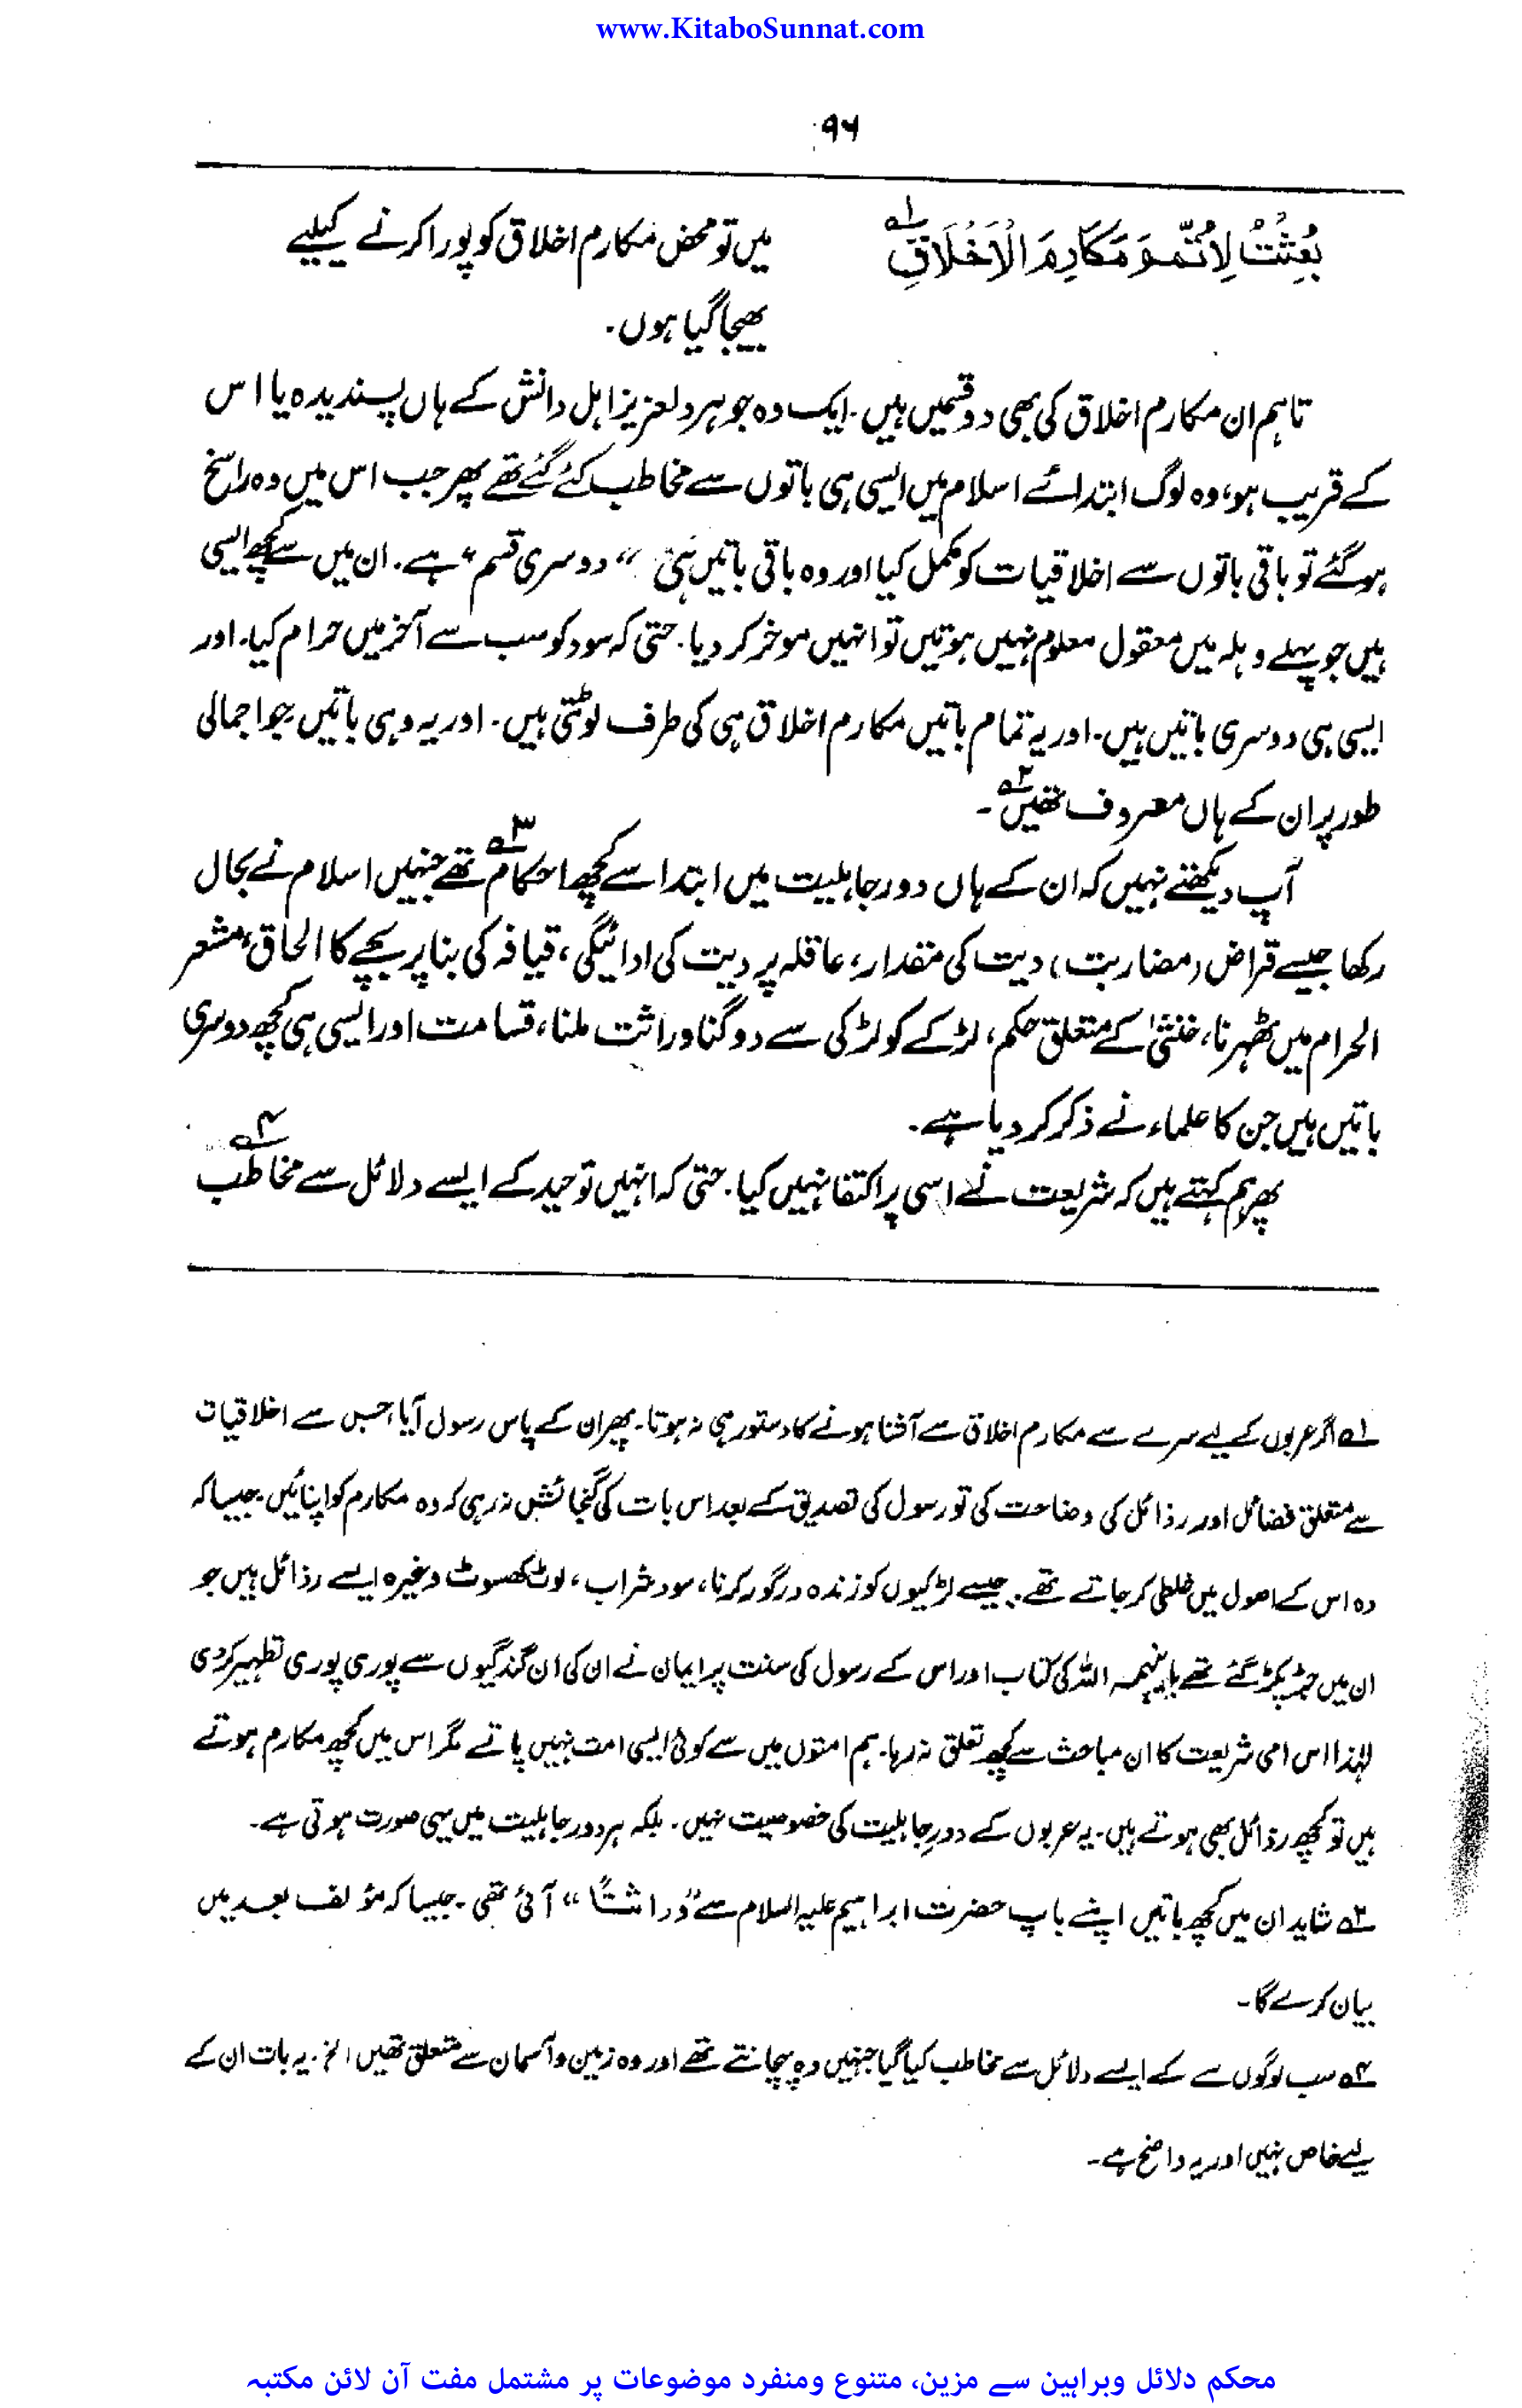 www.KitaboSunnat.com
۹۶
بُعِثْتُ لِاُتَمِّمَ مَكَارِمَ الْاَخْلَاقِ ۱؎
میں تو محض مکارم اخلاق کو پورا کرنے کیلیے
بھیجا گیا ہوں.
تاہم ان مکارم اخلاق کی بھی دو قسمیں ہیں۔ ایک وہ جو ہر دلعزیز اہل دانش کے ہاں پسندیدہ یا اس
کے قریب ہو، وہ لوگ ابتدائے اسلام میں ایسی ہی باتوں سے مخاطب کئے گئے تھے پھر جب اس میں وہ راسخ
ہو گئے تو باقی باتوں سے اخلاقیات کو مکمل کیا اور وہ باقی باتیں ہی ”دوسری قسم“ ہے. ان میں سے کچھ ایسی
ہیں جو پہلے وہلہ میں معقول معلوم نہیں ہوتیں تو انہیں موخر کر دیا. حتی کہ سود کو سب سے آخر میں حرام کیا۔ اور
ایسی ہی دوسری باتیں ہیں۔ اور یہ تمام باتیں مکارم اخلاق ہی کی طرف لوٹتی ہیں۔ اور یہ وہی باتیں جو اجمالی
طور پر ان کے ہاں معروف تھیں ۲؎۔
آپ دیکھتے نہیں کہ ان کے ہاں دور جاہلیت میں ابتدا سے کچھ احکام ۳؎ تھے جنہیں اسلام نے بحال
رکھا جیسے قراض (مضاربت) دیت کی مقدار، عاقلہ پر دیت کی ادائیگی، قیافہ کی بنا پر بچے کا الحاق، مشعر
الحرام میں ٹھہرنا، خنثیٰ کے متعلق حکم، لڑکے کو لڑکی سے دوگنا وراثت ملنا، قسامت اور ایسی ہی کچھ دوسری
باتیں ہیں جن کا علماء نے ذکر کر دیا ہے.
پھر ہم کہتے ہیں کہ شریعت نے اسی پر اکتفا نہیں کیا. حتی کہ انہیں توحید کے ایسے دلائل سے مخاطب ۴؎
۱؎ اگر عربوں کے لیے سرے سے مکارم اخلاق سے آشنا ہونے کا دستور ہی نہ ہوتا۔ پھر ان کے پاس رسول آیا جس سے اخلاقیات
سے متعلق فضائل اور رذائل کی وضاحت کی تو رسول کی تصدیق کے بعد اس بات کی گنجائش نہ رہی کہ وہ مکارم کو اپنائیں جیسا کہ
وہ اس کے اصول میں غلطی کر جاتے تھے. جیسے لڑکیوں کو زندہ درگور کرنا، سود شراب، لوٹ کھسوٹ وغیرہ ایسے رذائل ہیں جو
ان میں جڑ پکڑ گئے تھے بایںہمہ اللہ کی کتاب اور اس کے رسول کی سنت پر ایمان نے ان کی ان گندگیوں سے پوری پوری تطہیر کر دی
لہٰذا اس امی شریعت کا ان مباحث سے کچھ تعلق نہ رہا. ہم امتوں میں سے کوئی ایسی امت نہیں پاتے مگر اس میں کچھ مکارم ہوتے
ہیں تو کچھ رذائل بھی ہوتے ہیں۔ یہ عربوں کے دورِ جاہلیت کی خصوصیت نہیں۔ بلکہ ہر دور جاہلیت میں یہی صورت ہوتی ہے۔
۳؎ شاید ان میں کچھ باتیں اپنے باپ حضرت ابراہیم علیہ السلام سے ”وراثتاً“ آئی تھی۔ جیسا کہ مؤلف بعد میں
بیان کرے گا۔
۴؎ سب لوگوں سے کے ایسے دلائل سے مخاطب کیا گیا جنہیں وہ پہچانتے تھے اور وہ زمین و آسمان سے متعلق تھیں الخ. یہ بات ان کے
لیے خاص نہیں اور یہ واضح ہے۔
محکم دلائل وبراہین سے مزین، متنوع ومنفرد موضوعات پر مشتمل مفت آن لائن مکتبہ